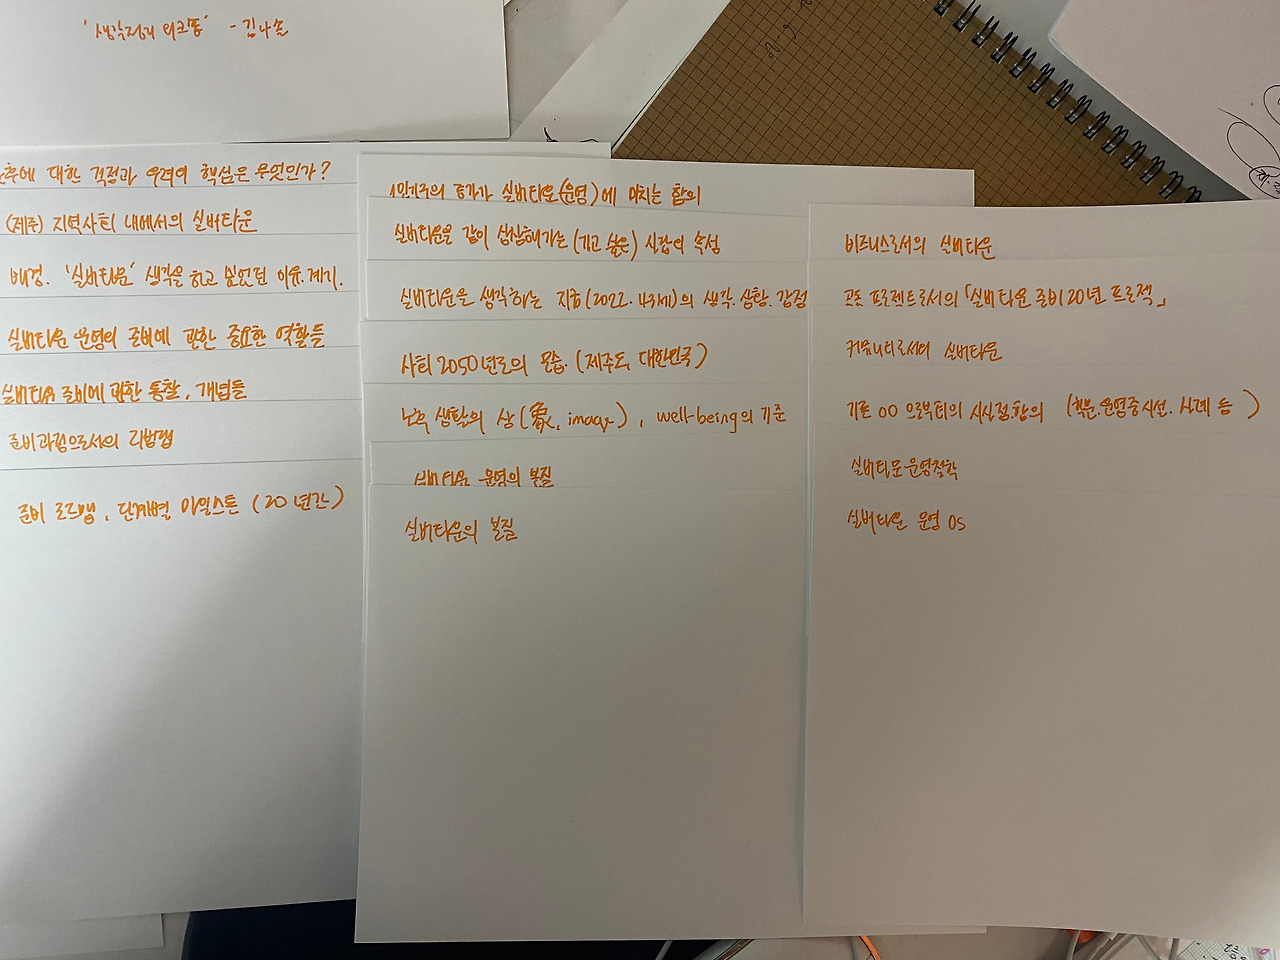 '생각정리 워크숍' - 김나솔
노후에 대한 걱정과 우려의 핵심은 무엇인가?
(제주) 지역사회 내에서의 실버타운
배경. '실버타운' 생각을 하고 싶었던 이유, 계기.
실버타운 운영의 준비에 관한 중요한 역할들
실버타운 준비에 관한 통찰, 개념들
준비과정으로서의 리빙랩
준비 로드맵, 단계별 마일스톤 (20년간)
1인가구의 증가가 실버타운(운영)에 미치는 함의
실버타운을 같이 상상해가는 (가고 싶은) 사람의 속성
실버타운을 생각하는 지금(2022. 43세)의 생각, 상황, 감정
사회 2050년도의 모습. (제주도, 대한민국)
노후 생활의 상(象, image), well-being의 기준
실버타운 운영의 본질
실버타운의 본질
비즈니스로서의 실버타운
공동 프로젝트로서의 「실버타운 준비 20년 프로젝」
커뮤니티로서의 실버타운
기존 00 으로부터의 시사점.함의 (학문.운영중 시설. 사례 등)
실버타운 운영철학
실버타운 운영 OS